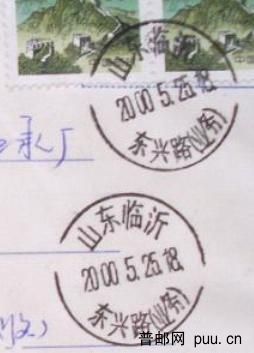 山东临沂
2000.5.25.18
东兴路(业务)
承厂
山东临沂
2000.5.25.18
东兴路(业务)
收)
普邮网 puu.cn